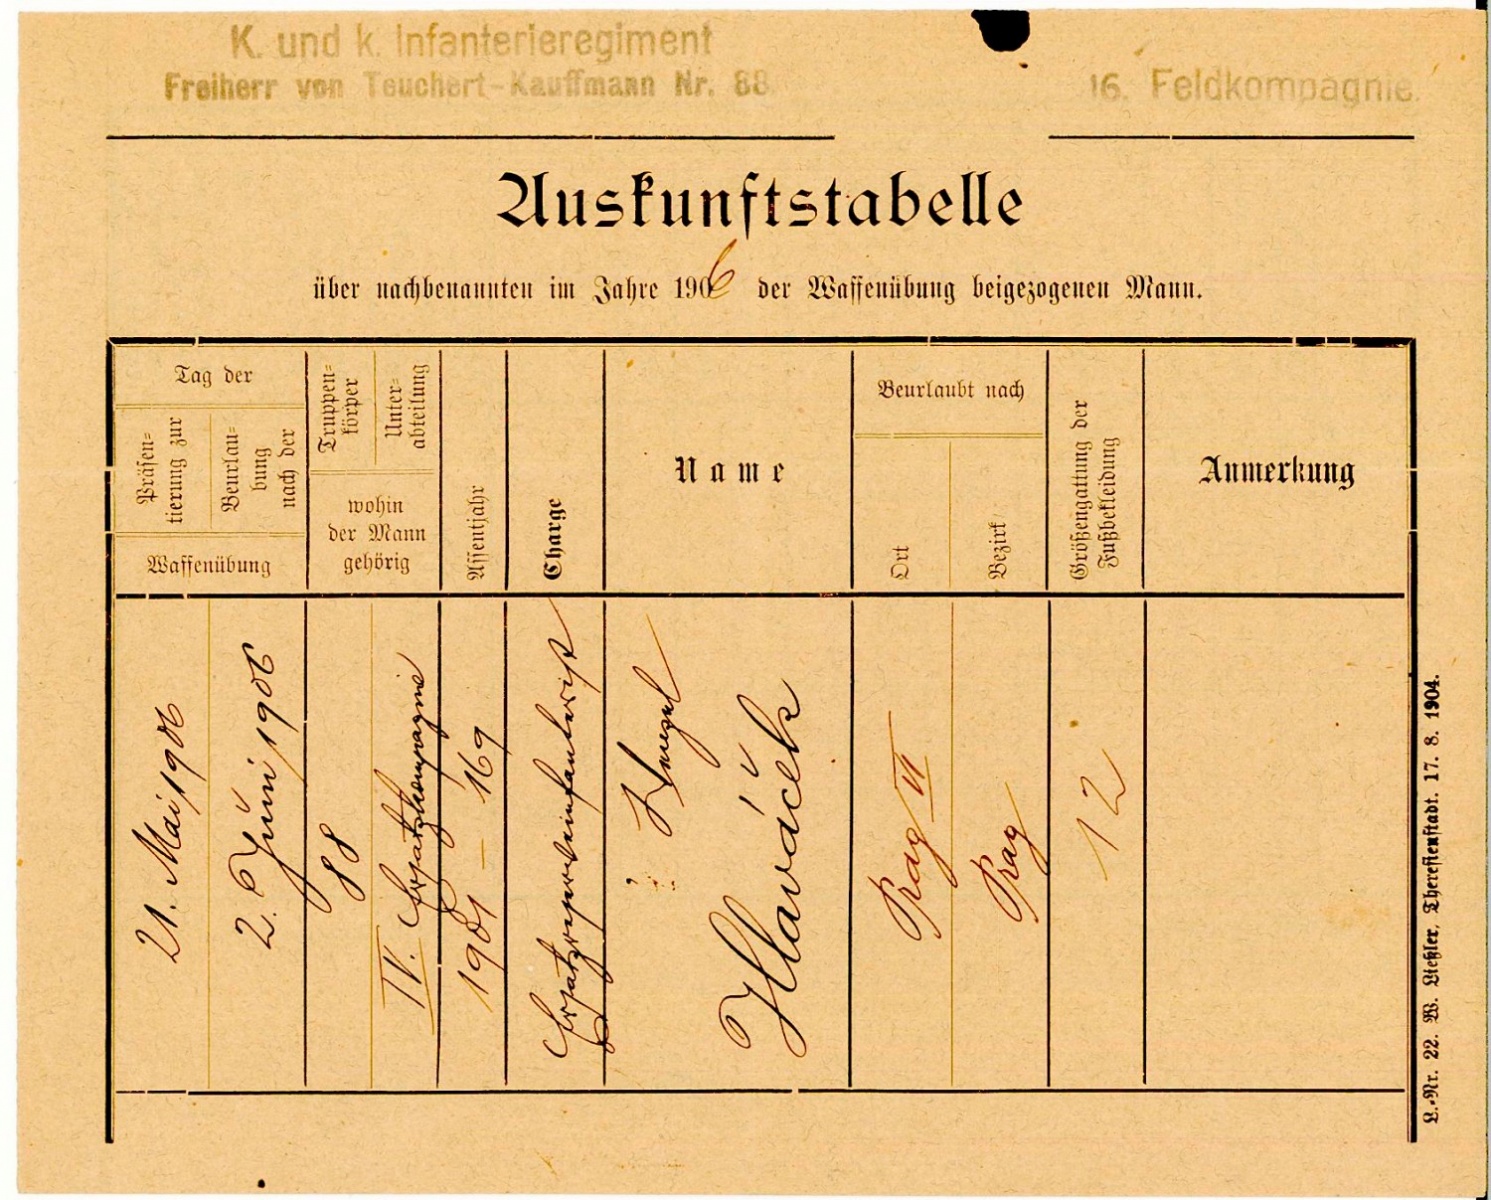 K. und k. Infanterieregiment
Freiherr von Teuchert-Kauffmann Nr. 88
16. Feldkompagnie.
Auskunftstabelle
über nachbenannten im Jahre 1906 der Waffenübung beigezogenen Mann.
Tag der
Präsen-
tierung zur
Beurlau-
bung
nach der
Waffenübung
Truppen-
körper
Unter-
abteilung
wohin
der Mann
gehörig
Assentjahr
Charge
Name
Beurlaubt nach
Ort
Bezirk
Größengattung der
Fußbekleidung
Anmerkung
21. Mai 1906
2. Juni 1906
88
IV. Ersatzkompagnie
1901 – 169
Ersatzreserveinfanterist
Hlaváček
Prag VII
Prag
12
L.-Nr. 22. W. Ließler, Theresienstadt. 17. 8. 1904.